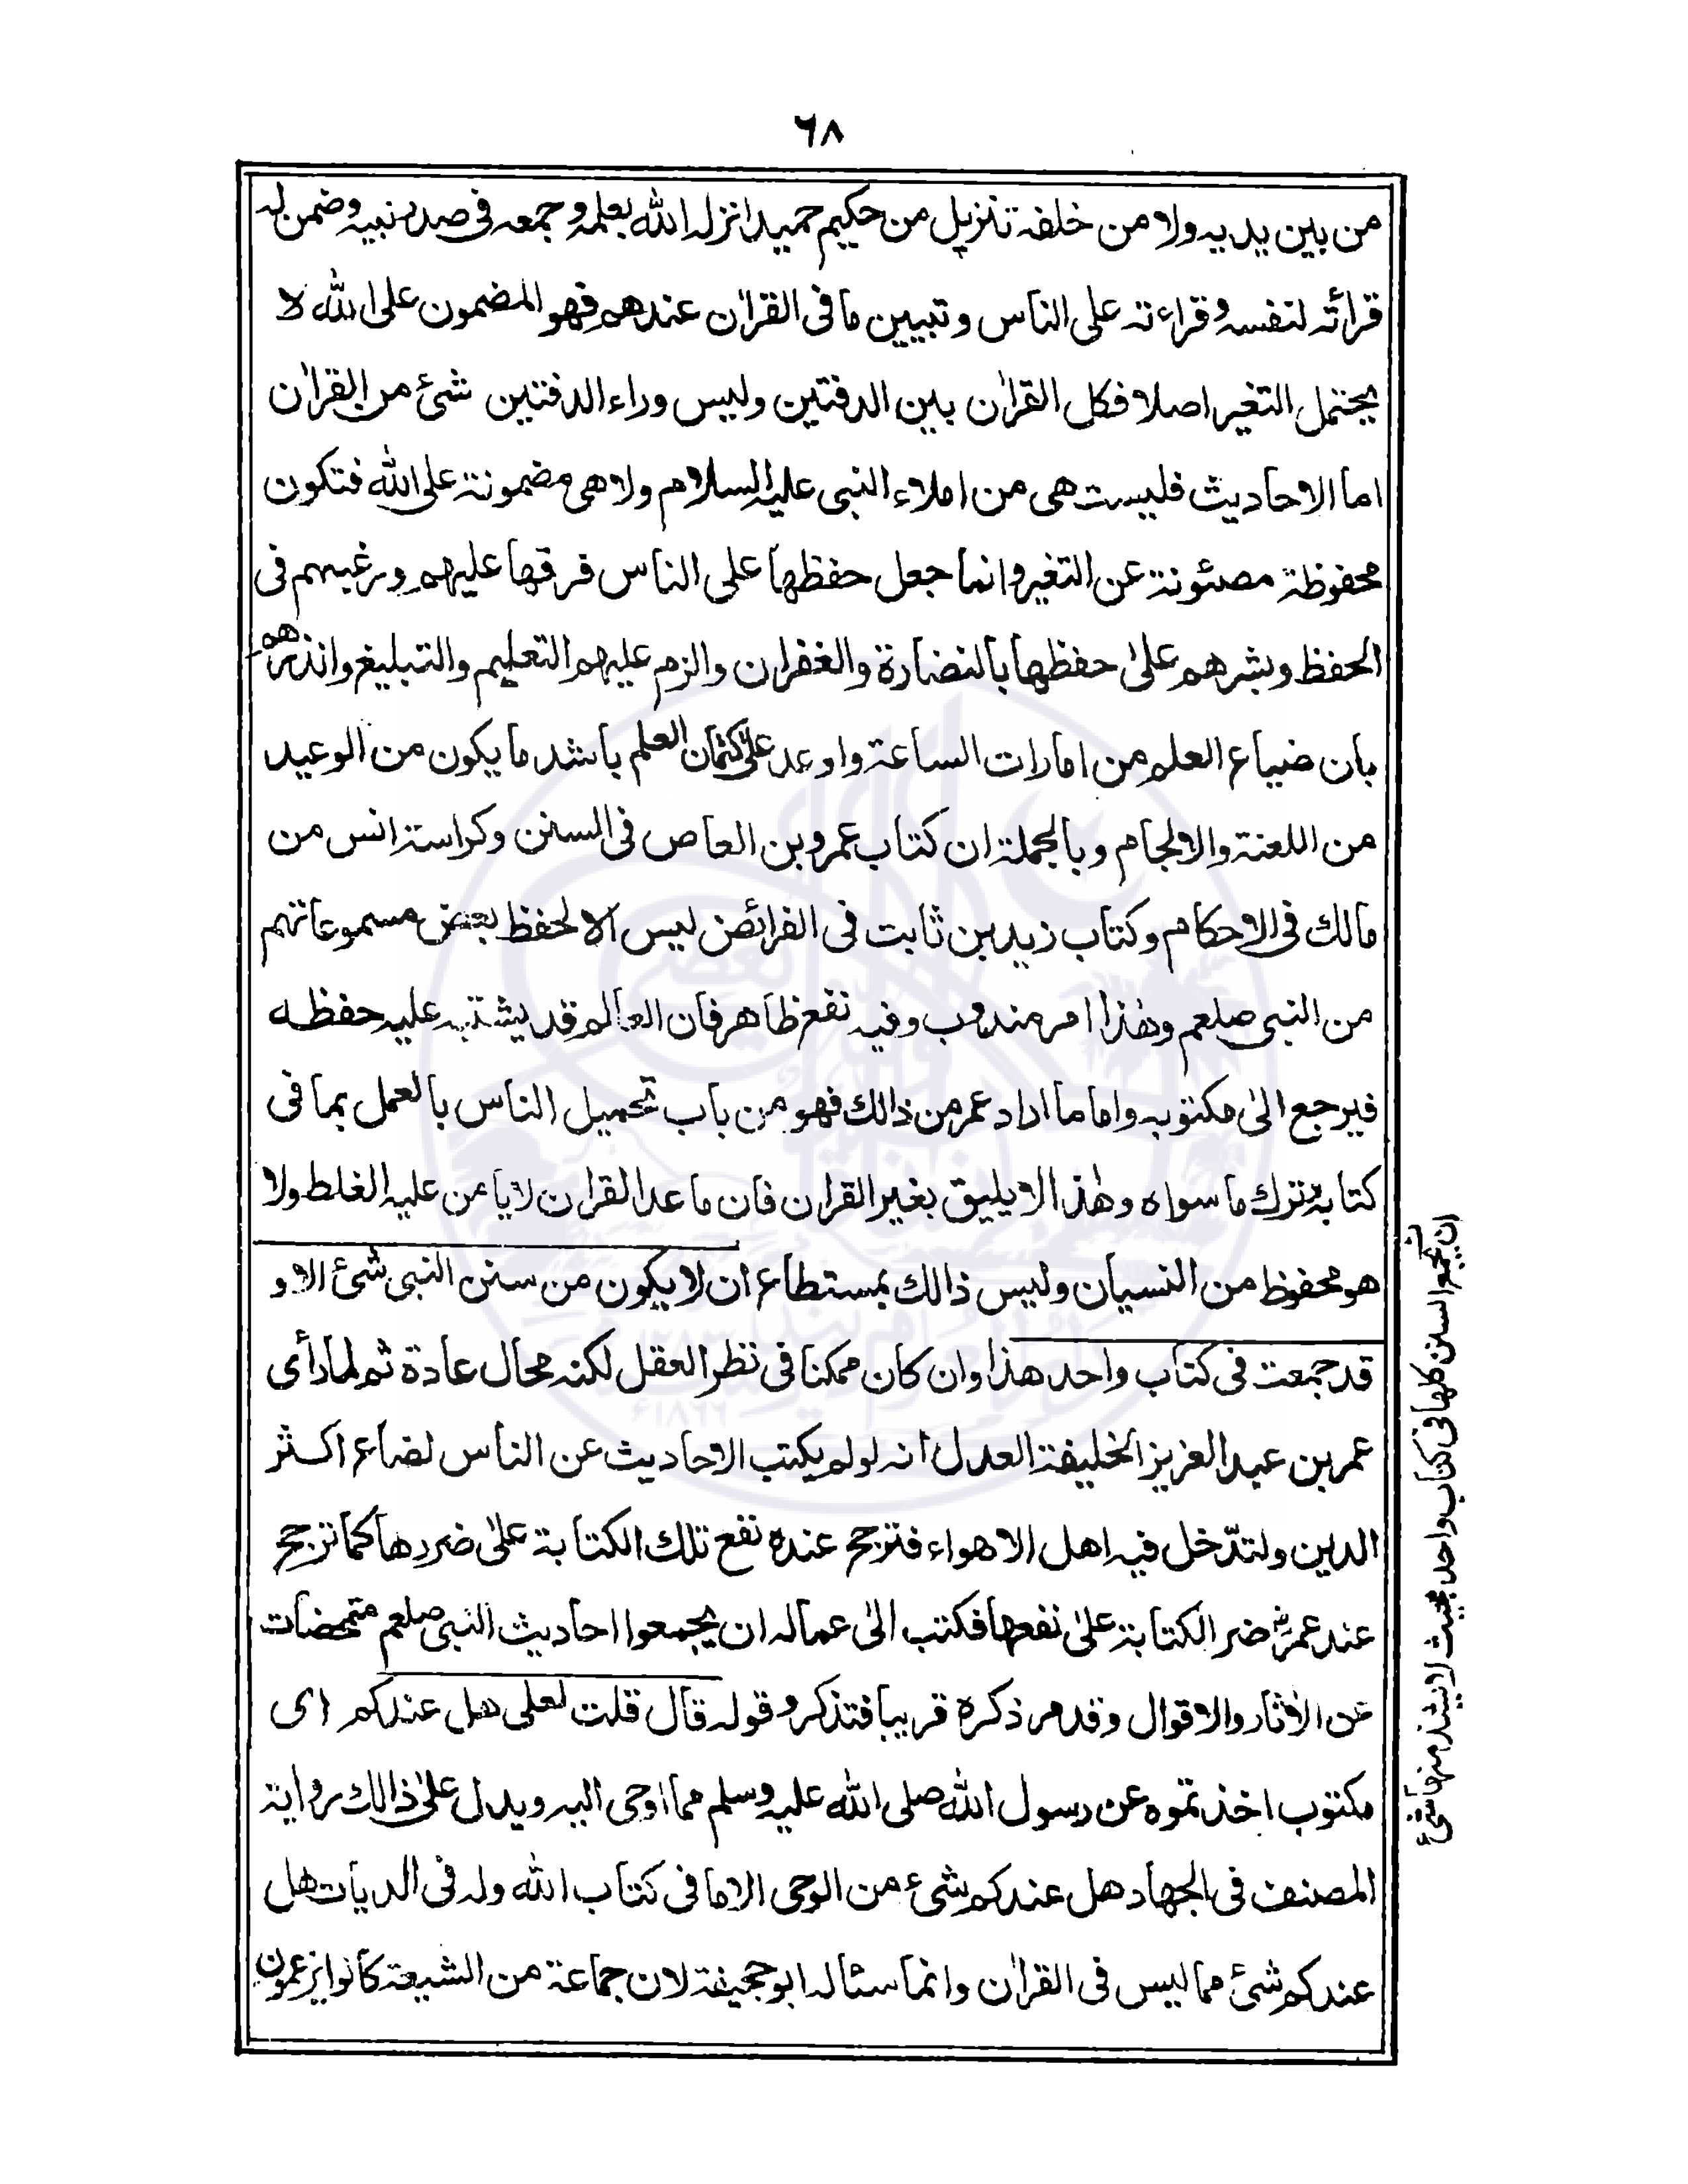 ٦٨
من بين يديه ولا من خلفه تنزيل من حكيم حميد انزله الله بعلمه وجمعه فى صدر نبيه وضمن له
قرائته لنفسه وقراءته على الناس وتبيين ما فى القراٰن عندهم فهو المضمون على الله لا
يحتمل التغير اصلا فكل القراٰن بين الدفتين وليس وراء الدفتين شئ من القراٰن
اما الاحاديث فليست هى من املاء النبى عليه السلام ولا هى مضمونة على الله فتكون
محفوظة مصئونة عن التغير وانما جعل حفظها على الناس فرقها عليهم ورغبهم فى
الحفظ وبشرهم علىٰ حفظها بالنضارة والغفران والزم عليهم التعليم والتبليغ وانذرهم
بان ضياع العلم من امارات الساعة واوعد على كتمان العلم باشد ما يكون من الوعيد
من اللعنة والالجام وبالجملة ان كتاب عمرو بن العاص فى السنن وكراسة انس من
مالك فى الاحكام وكتاب زيد بن ثابت فى الفرائض ليس الا لحفظ بعض مسموعاتهم
من النبى صلعم وهٰذا امر مندوب وفيه نفع ظاهر فان العالم قد يشتبه عليه حفظه
فيرجع الىٰ مكتوبه واما ما اراد عمر من ذالك فهو من باب تحميل الناس بالعمل بما فى
كتابه وترك ما سواه وهٰذا لا يليق بغير القراٰن فان ما عدا القراٰن لا يامن عليه الغلط ولا
هو محفوظ من النسيان وليس ذالك بمستطاع ان لا يكون من سنن النبى شئ الا و
قد جمعت فى كتاب واحد هذا وان كان ممكنا فى نظر العقل لكنه محال عادة ثم لما رأى
عمر بن عبد العزيز الخليفة العدل انه لو لم يكتب الاحاديث عن الناس لضاع اكثر
الدين ولتدّخل فيه اهل الاهواء فترجح عنده نفع تلك الكتابة علىٰ ضررها كما ترجح
عند عمرؓ ضر الكتابة علىٰ نفعها فكتب الىٰ عماله ان يجمعوا احاديث النبى صلعم متمحضات
عن الاٰثار والاقوال وقد مر ذكره قريبا فتذكر وقوله قال قلت لعلى هل عندكم اى
مكتوب اخذتموه عن رسول الله صلى الله عليه وسلم مما اوحى اليه ويدل علىٰ ذالك رواية
المصنف فى الجهاد هل عندكم شئ من الوحى الا ما فى كتاب الله وله فى الديات هل
عندكم شئ مما ليس فى القراٰن وانما سئاله ابو جحيفة لان جماعة من الشيعة كانوا يزعمون
ان يجمعوا السنن كلها فى كتاب واحد بحيث لا يشذ منها شئ